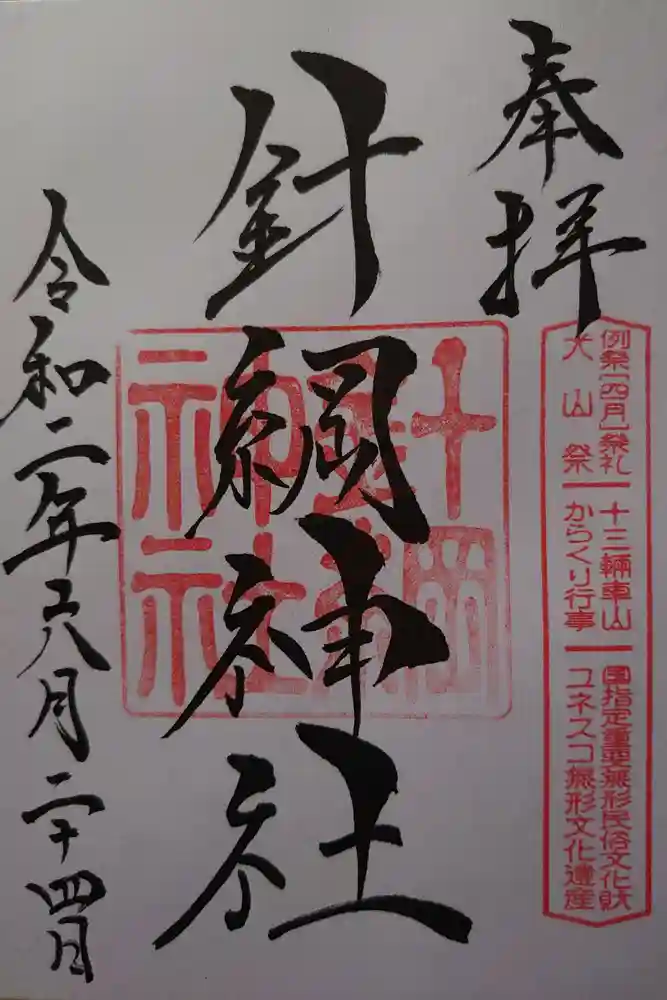 奉拝
例祭「四月」祭礼
犬山祭
十三輛車山
からくり行事
国指定重要無形民俗文化財
ユネスコ無形文化遺産
針綱神社
針綱
神社
令和二年六月二十四日